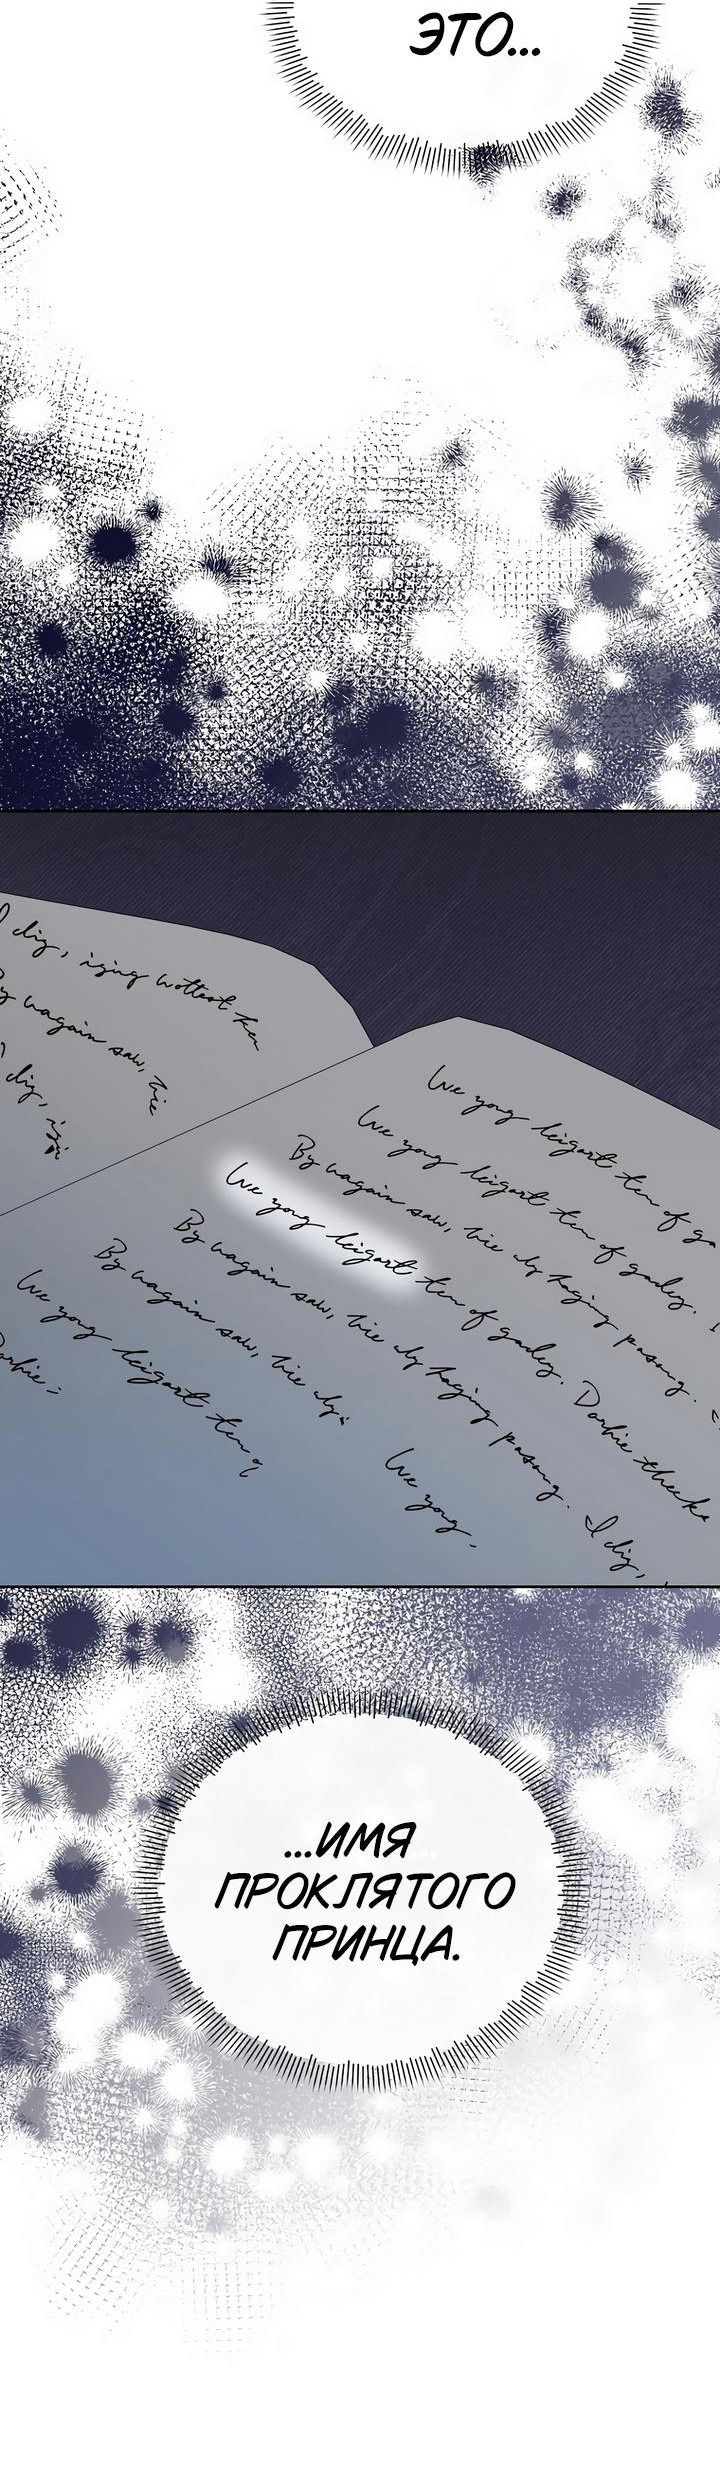 ЭТО...
I dig, izing wottest ten
By wagain saw, tie
I dig,
We yong keigart ten of ga
We yong keigart ten of gadey.
By wagain saw, tie dy haging pasong.
We yong keigart ten of gadey. Darhie theeka
By wagain saw, tie dy haging pasong. I dig,
By wagain saw, tie dy
We yong keigart ten
We yong.
...ИМЯ
ПРОКЛЯТОГО
ПРИНЦА.